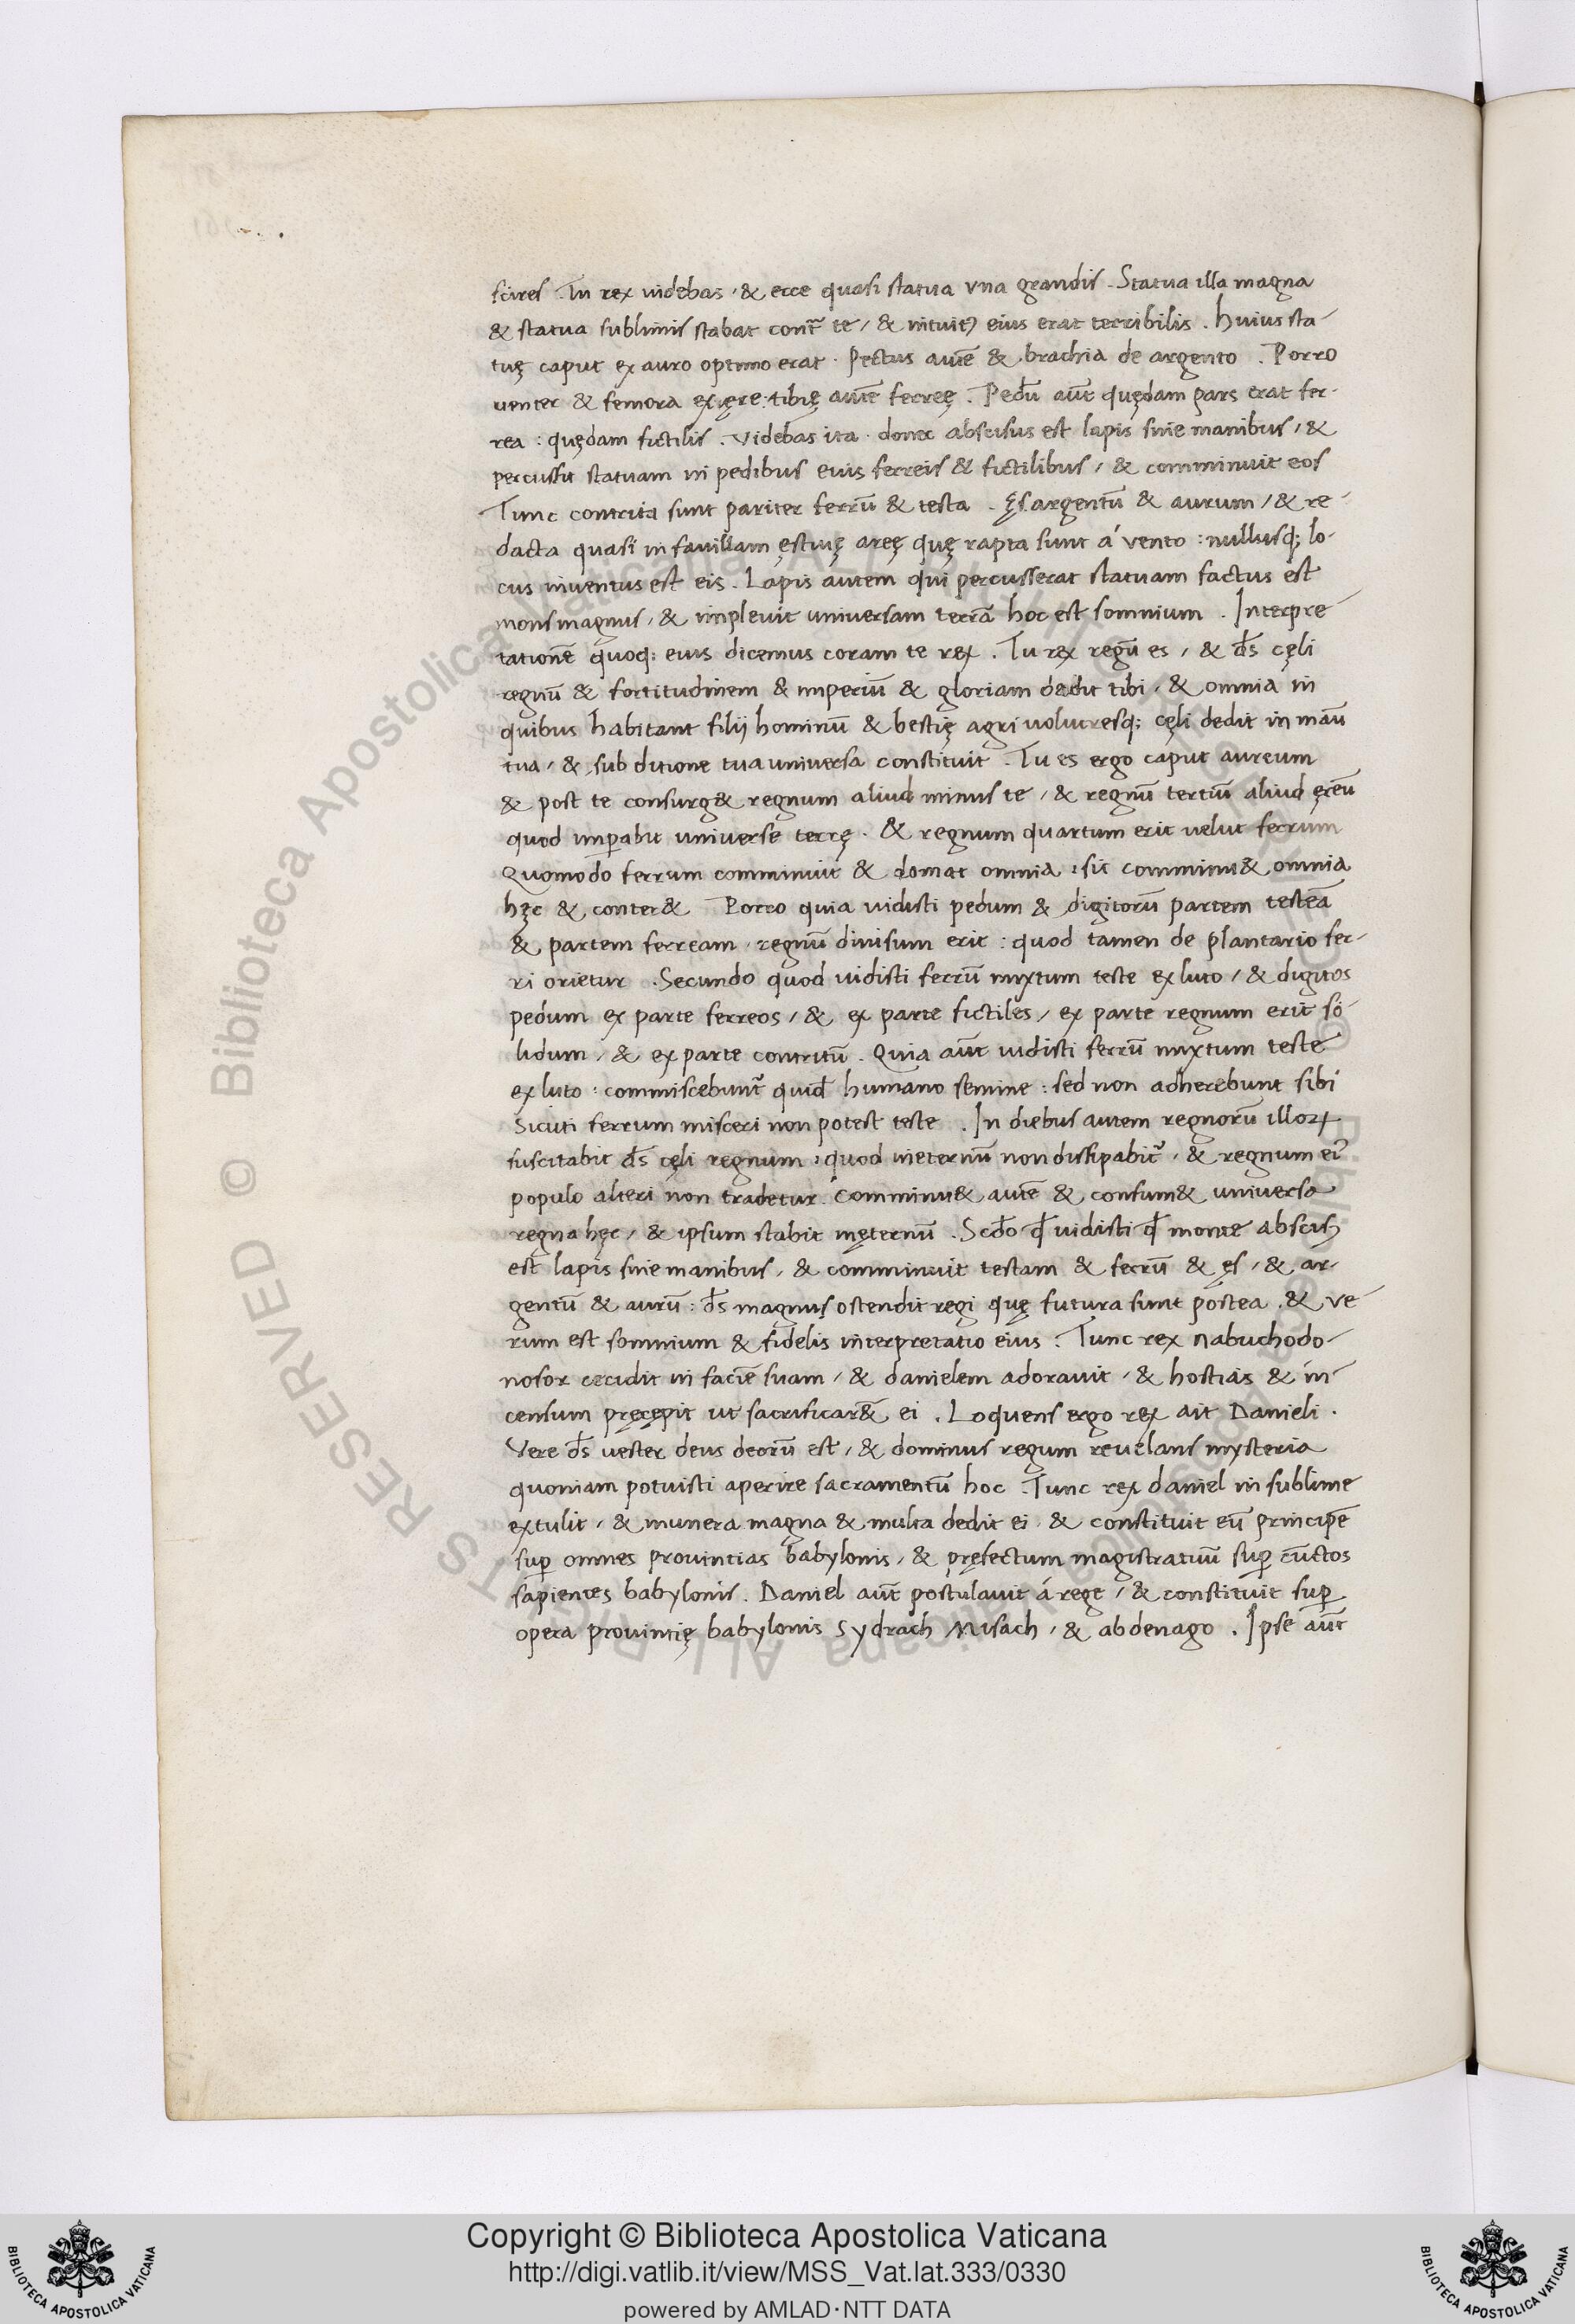 scires . Tu rex uidebas , & ecce quasi statua vna grandis . Statua illa magna
& statua sublimis stabat cont̃ te , & intuitꝰ eius erat terribilis . huius sta-
tuę caput ex auro optimo erat . Pectus autē & brachia de argento . Porro
uenter & femora ex ęre : tibię autē ferreę . Pedū aūt quędam pars erat fer-
rea : quędam fictilis . Videbas ita . donec abscisus est lapis sine manibus , &
percussit statuam in pedibus euis ferreis & fictilibus , & comminuit eos
Tunc contrita sunt pariter ferrū & testa . ęs argentū & aurum , & re-
dacta quasi in fauillam ęstiuę areę quę rapta sunt á vento : nullusq; lo-
cus inuentus est eis . Lapis autem qui percusserat statuam factus est
mons magnus , & impleuit universam terrā hoc est somnium . Interpre-
tationē quoq; euis dicemus coram te rex . Tu rex regū es , & d̄s cęli
regnū & fortitudinem & imperiū & gloriam dedit tibi , & omnia in
quibus habitant filij hominū & bestię agri uolucresq; cęli dedit in manū
tua , & sub ditione tua universa constituit . Tu es ergo caput aureum
& post te consurg& regnum aliud minus te , & regnū tertiū aliud ęreū
quod imꝑabit universe terrę . & regnum quartum erit uelut ferrum
Quomodo ferrum comminuit & domat omnia : sic comminu& omnia
hęc & conter& Porro quia uidisti pedum & digitorū partem testeā
& partem ferream , regnū diuisum erit : quod tamen de plantario fer-
ri orietur . Secundo quod uidisti ferrū mixtum teste ex luto , & digitos
pedum ex parte ferreos , & ex parte fictiles , ex parte regnum erit so-
lidum , & ex parte contritū . Quia aūt uidisti ferrū mixtum teste
ex luto : commiscebunt̃ quid̄ humano semine : sed non adherebunt sibi
Sicuti ferrum misceri non potest teste . In diebus autem regnorū illoꝝ
suscitabit d̄s cęli regnum : quod ineternū non dissipabit̃ , & regnum eiꝰ
populo alteri non tradetur . Comminu& autē & consum& universa
regna hęc , & ipsum stabit inęternū . Scd̄o ꝙ uidisti ꝙ monte abscisꝰ
est lapis sine manibus , & comminuit testam & ferrū & ęs , & ar-
gentū & aurū : d̄s magnus ostendit regi quę futura sunt postea . & ve-
rum est somnium & fidelis interpretatio eius . Tunc rex nabuchodo-
nosor cecidit in faciē suam , & danielem adorauit , & hostias & in-
censum pręcępit ut sacrificar& ei . Loquens ergo rex ait Danieli .
Vere d̄s uester deus deorū est , & dominus regum reuelans mysteria
quoniam potuisti aperire sacramentū hoc . Tunc rex daniel in sublime
extulit , & munera magna & multa dedit ei , & constituit eū principē
suꝑ omnes prouincias babylonis , & pręfectum magistratuū suꝑ cūctos
sapientes babylonis . Daniel aūt postulauit á rege , & constituit suꝑ
opera prouincię babylonis Sydrach Misach , & abdenago . Ipse aūt
Copyright © Biblioteca Apostolica Vaticana
http://digi.vatlib.it/view/MSS_Vat.lat.333/0330
powered by AMLAD·NTT DATA